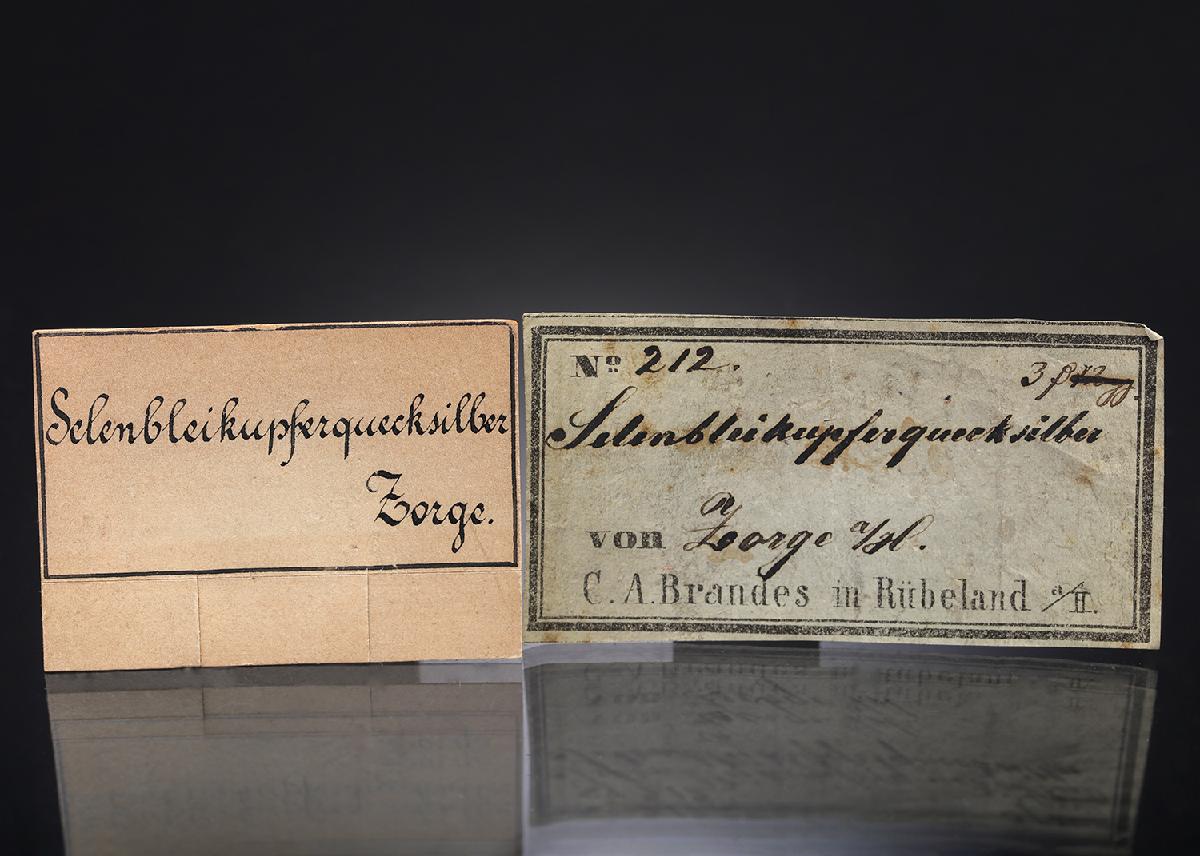 Selenbleikupferquecksilber
Zorge.
No 212.
3 β
Selenbleikupferquecksilber
von Zorge a/H.
C. A. Brandes in Rübeland a/H.